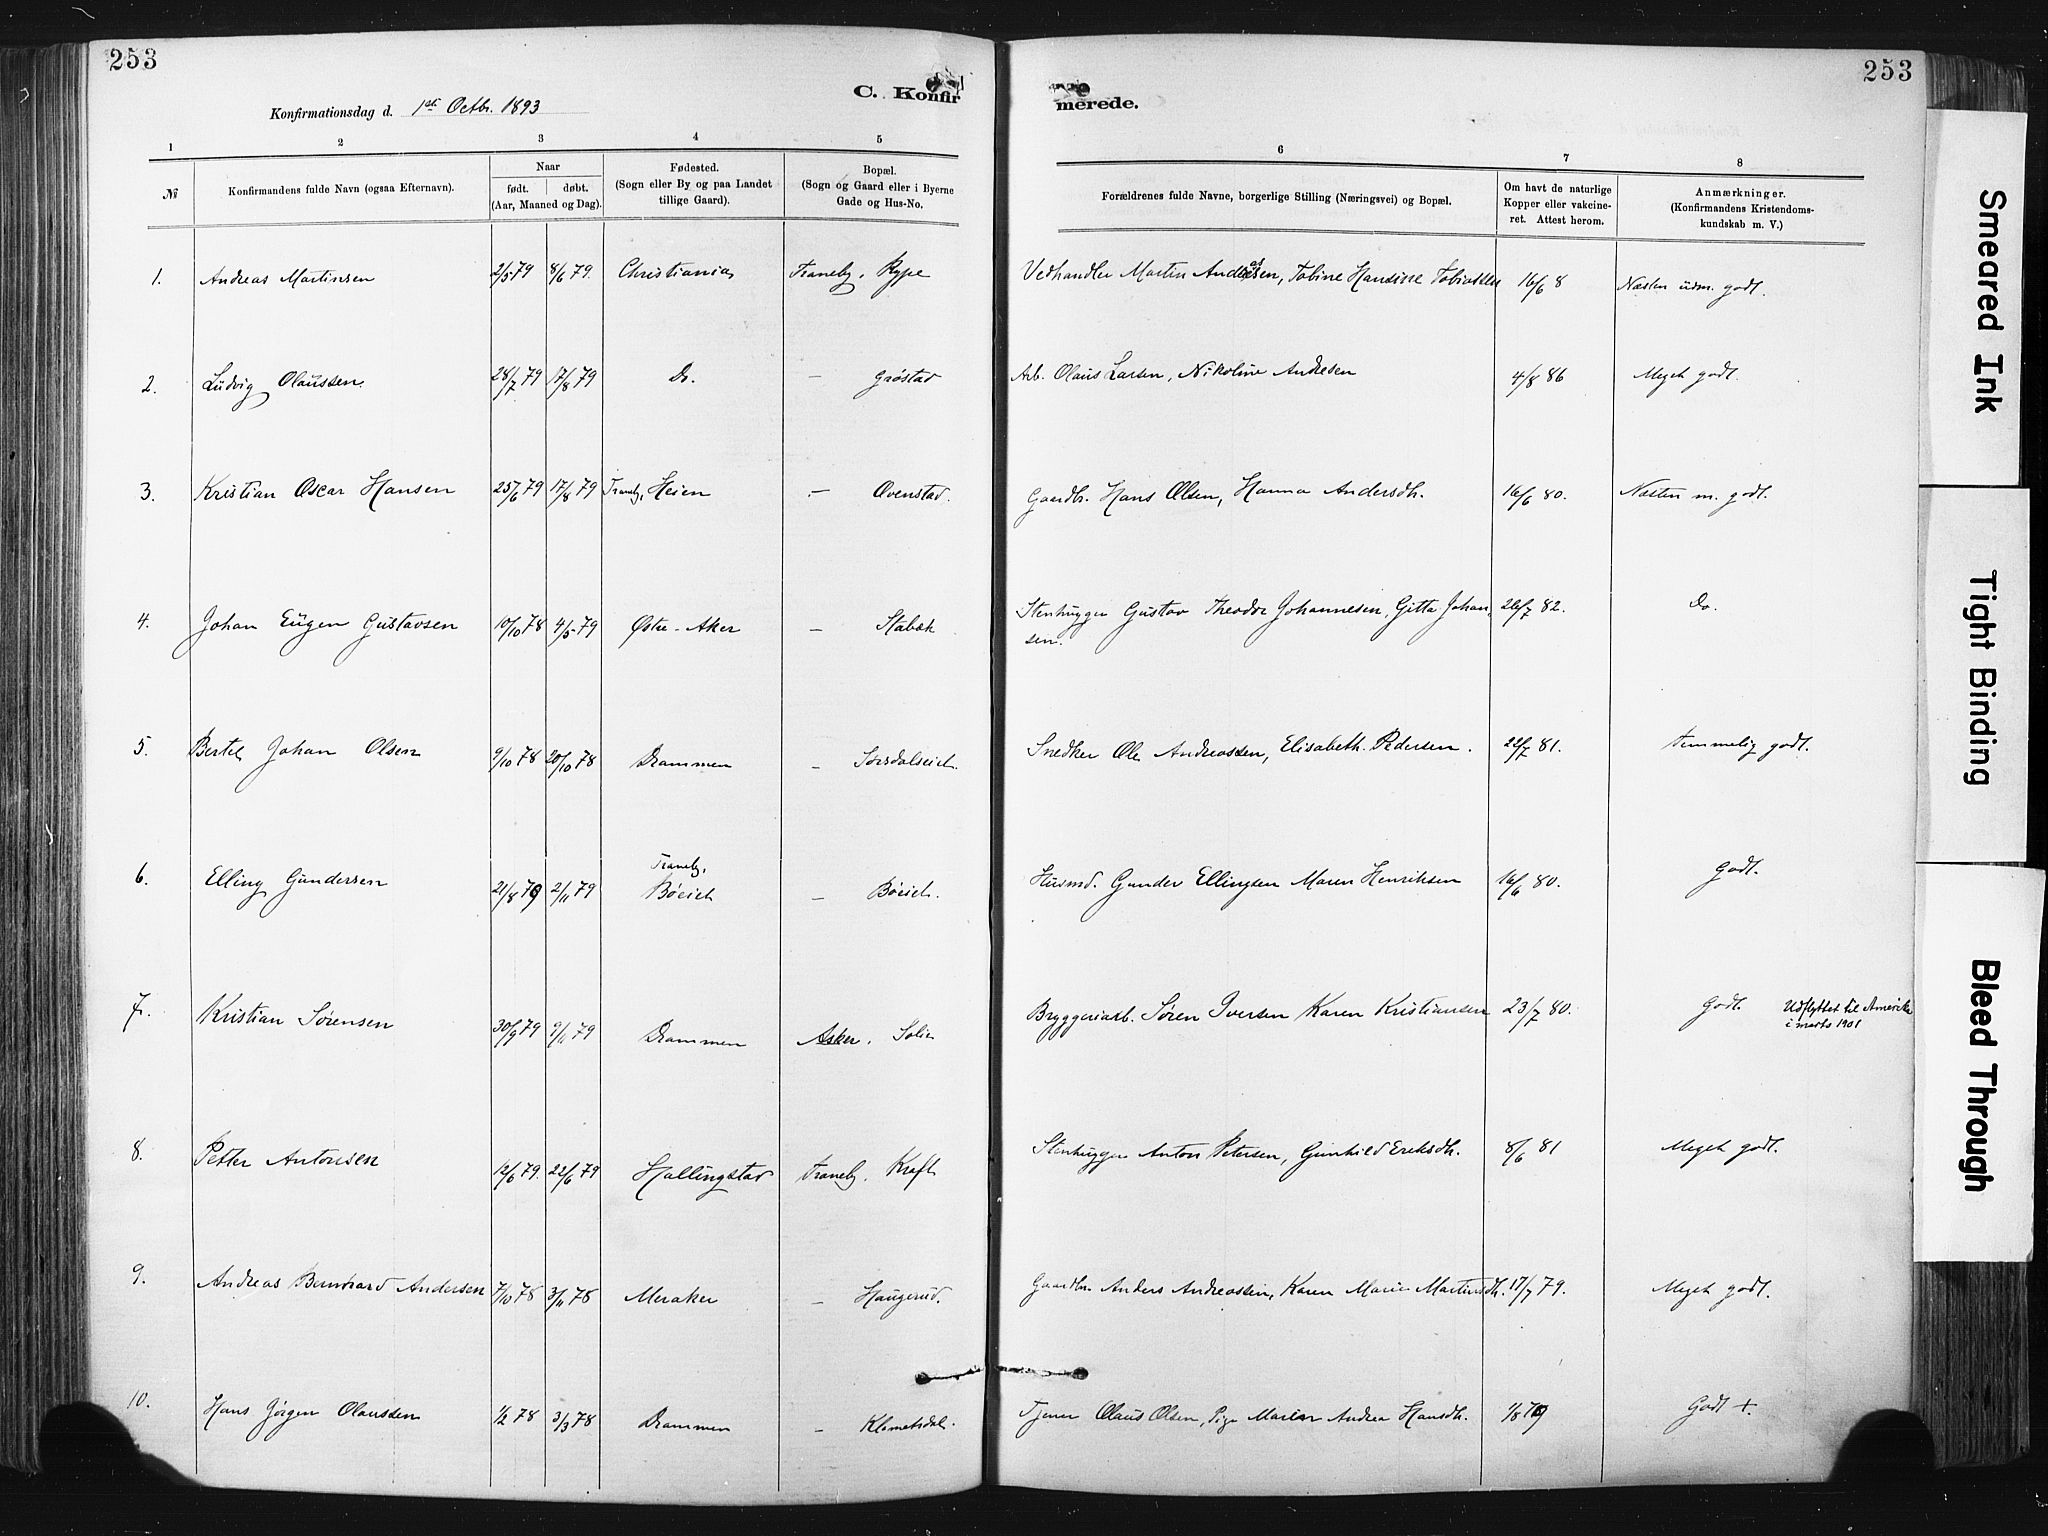 253
253
C. Konfirmerede.
Konfirmationsdag d. 1ste Octbr. 1893
1 2 3 4 5 6 7 8
№
Konfirmandens fulde Navn (ogsaa Efternavn).
Naar
født. døbt.
(Aar, Maaned og Dag).
Fødested.
(Sogn eller By og paa Landet
tillige Gaard).
Bopæl.
(Sogn og Gaard eller i Byerne
Gade og Hus-No.
Forældrenes fulde Navne, borgerlige Stilling (Næringsvei) og Bopæl.
Om havt de naturlige
Kopper eller vakcine-
ret. Attest herom.
Anmærkninger.
(Konfirmandens Kristendoms-
kundskab m. V.)
1. Andreas Martinsen 2/5 79 8/6 79. Christiania Traneby. Rype Vedhandler Martin Andreasen, Tobine Hansine Tobiassen 16/6 8 Næsten udm. godt.
2. Ludvig Olaussen 28/7 79 17/8 79 Do. — Grøstad Arb. Olaus Larsen, Nikoline Andresen 4/8 86 Meget godt.
3. Kristian Oscar Hansen 25/6 79 17/8 79 Traneby, Heien — Ovenstad. Gaardbr. Hans Olsen, Hanna Andersdtr. 16/6 80. Næsten m. godt.
4. Johan Eugen Gustavsen 10/10 78 4/5 79 Østre-Aker — Stabæk Stenhugger Gustav Theodor Johannesen, Gitta Johan-
sen. 26/7 82. Do.
5. Bertel Johan Olsen 9/10 78 20/10 78 Drammen — Sørsdalseich. Snedker Ole Andreassen, Elisabeth Pedersen. 22/7 81. Temmelig godt.
6. Elling Gundersen 21/8 79 2/11 79 Traneby, Böeich — Böeich. Husmd. Gunder Ellingsen Maren Henriksen 16/6 80. Godt.
7. Kristian Sörensen 30/9 79 9/11 79 Drammen Asker. Solie Bryggeriarb. Sören Iversen Karen Kristiansen 23/7 80. Godt. Udflyttet til Amerika
i marts 1901
8. Petter Antonsen 12/6 79. 22/6 79 Hallingstad Traneby. Kraft Stenhugger Anton Petersen, Gunhild Eriksdtr. 8/6 81 Meget godt.
9. Andreas Bernhard Andersen 7/10 78 3/11 78 Meraker — Haugerud. Gaardbr. Anders Andreassen, Karen Marie Martinsdtr. 17/7 79. Meget godt.
10. Hans Jörgen Olaussen 1/2 78 3/3 78 Drammen — Klemetsdal. Tjener Olaus Olsen, Pige Maren Andrea Hansdtr. 1/8 79 Godt +.
Smeared Ink
Tight Binding
Bleed Through